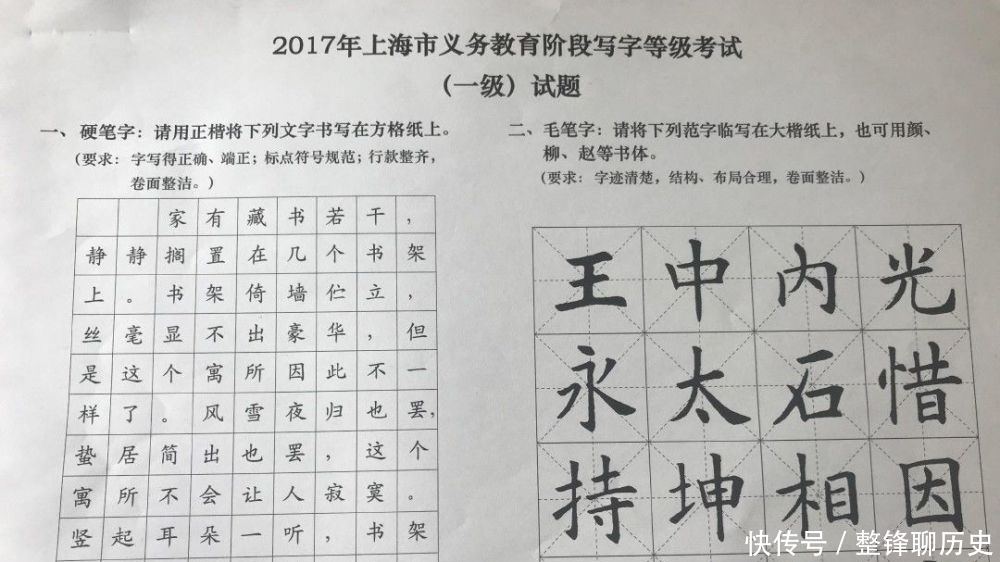 2017年上海市义务教育阶段写字等级考试
（一级）试题
一、硬笔字：请用正楷将下列文字书写在方格纸上。
（要求：字写得正确、端正；标点符号规范；行款整齐，
卷面整洁。）
家有藏书若干，
静静搁置在几个书架
上。书架倚墙伫立，
丝毫显不出豪华，但
是这个寓所因此不一
样了。风雪夜归也罢，
蛰居简出也罢，这个
寓所不会让人寂寞。
竖起耳朵一听，书架
二、毛笔字：请将下列范字临写在大楷纸上，也可用颜、
柳、赵等书体。
（要求：字迹清楚，结构、布局合理，卷面整洁。）
王中内光
永太石惜
持坤相因
快传号／整锋聊历史